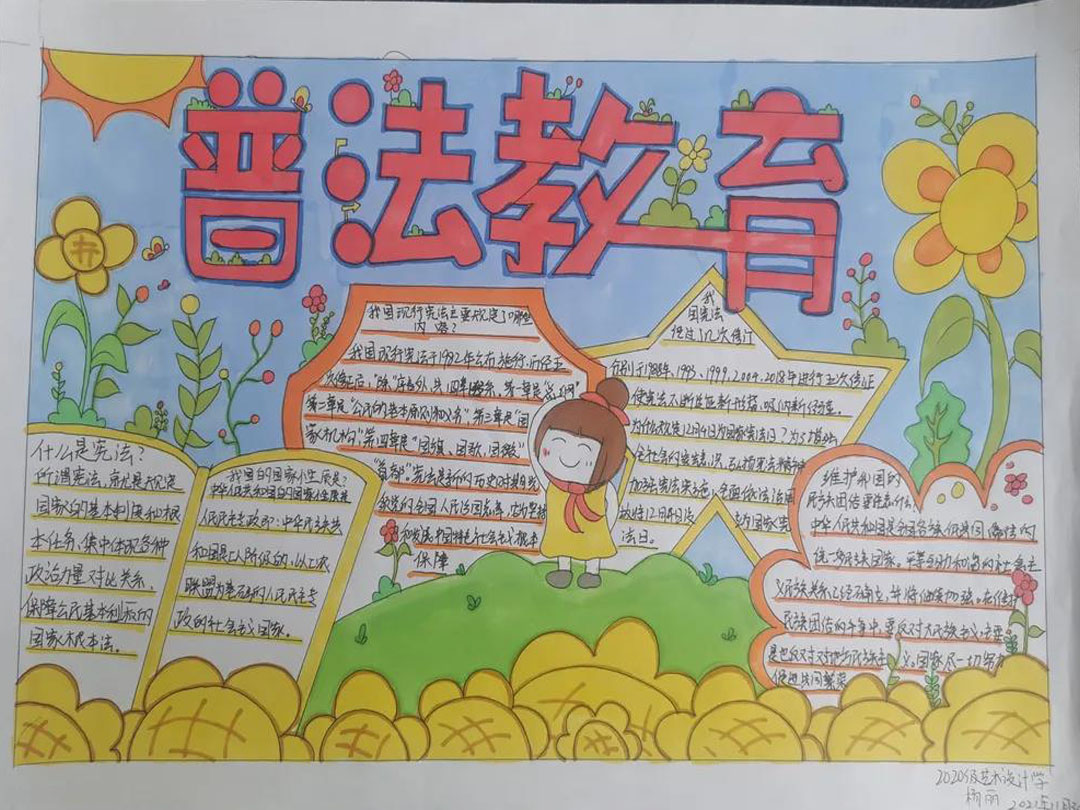 普法教育
什么是宪法?
所谓宪法,就是规定
国家的基本制度和根
本任务、集中体现各种
政治力量对比关系、
保障公民基本利权的
国家根本法。
我国的国家性质是?
中华人民共和国的国家性质是
人民民主专政
和国是工人阶级的,以工农
联盟为基础的人民民主专
政的社会主义国家。
我国现行宪法主要规定了哪些
内容?
我国现行宪法于1982年公布施行,历经五
次修正后,除“序言”外,共四章
第一章是“总纲”
第二章是“公民的基本权利和义务”第三章是“国
家机构”第四章是“国旗、国歌、国徽”
“首都”宪法是新的历史时期
和发展中国特色社会主义根本
保障
我
国宪法
经过几次修订
分别于1988年、1993、1999、2004、2018年进行五次修正
使宪法不断适应新形势、吸纳新经验。
为什么设定12月4日为国家宪法日?为了增强
全社会的宪法意识,弘扬宪法精神
加强宪法实施,全面依法治国
故将12月4日设
为国家宪
法日。
维护我国的
民族团结重要意义是什么?
中华人民共和国是全国各族人民共同缔造的
统一多民族国家,平等
义民族关系已经确立,并将继续加强。在维护
民族团结的斗争中,要反对大民族主义,主要
是
国家尽一切努力
促进共同繁荣
2020级艺术设计学
杨丽 2021年11月